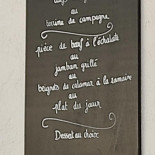 ou
terrine de campagne
pièce de bœuf à l'échalote
ou
jambon grillé
ou
beignets de calamar à la romaine
ou
plat du jour
Dessert au choix